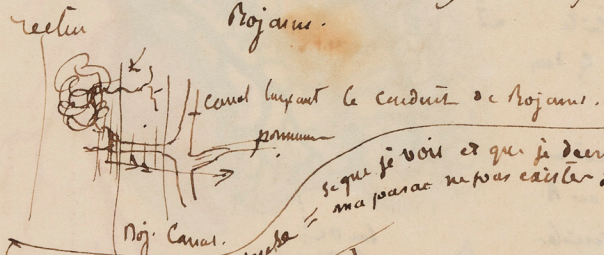 rectum
Bojanus.
canal longeant le conduit de Bojanus.
Boj. Canal.
ce que je vois et que je
ma parait ne pas exister